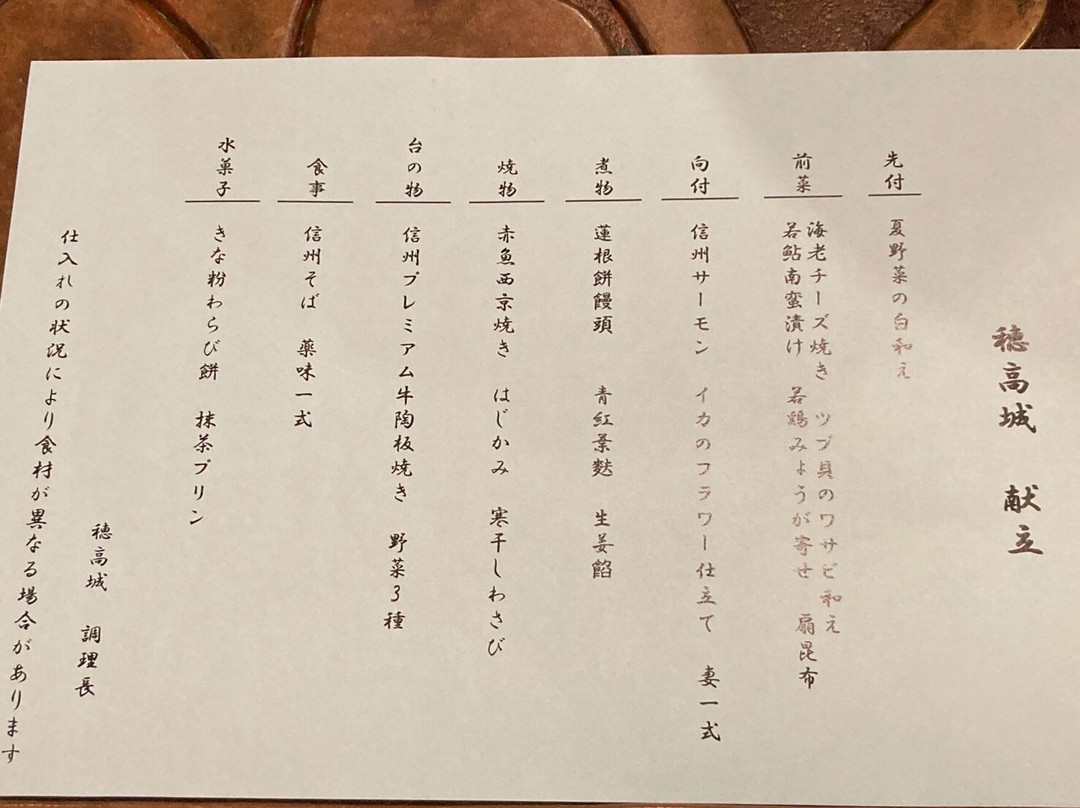 穂高城 献立
先付
夏野菜の白和え
前菜
海老チーズ焼き ツブ貝のワサビ和え
若鮎南蛮漬け 若鶏みょうが寄せ 扇昆布
向付
信州サーモン イカのフラワー仕立て 妻一式
煮物
蓮根餅饅頭 青紅葉麩 生姜餡
焼物
赤魚西京焼き はじかみ 寒干しわさび
台の物
信州プレミアム牛陶板焼き 野菜3種
食事
信州そば 薬味一式
水菓子
きな粉わらび餅 抹茶プリン
穂高城 調理長
仕入れの状況により食材が異なる場合があります